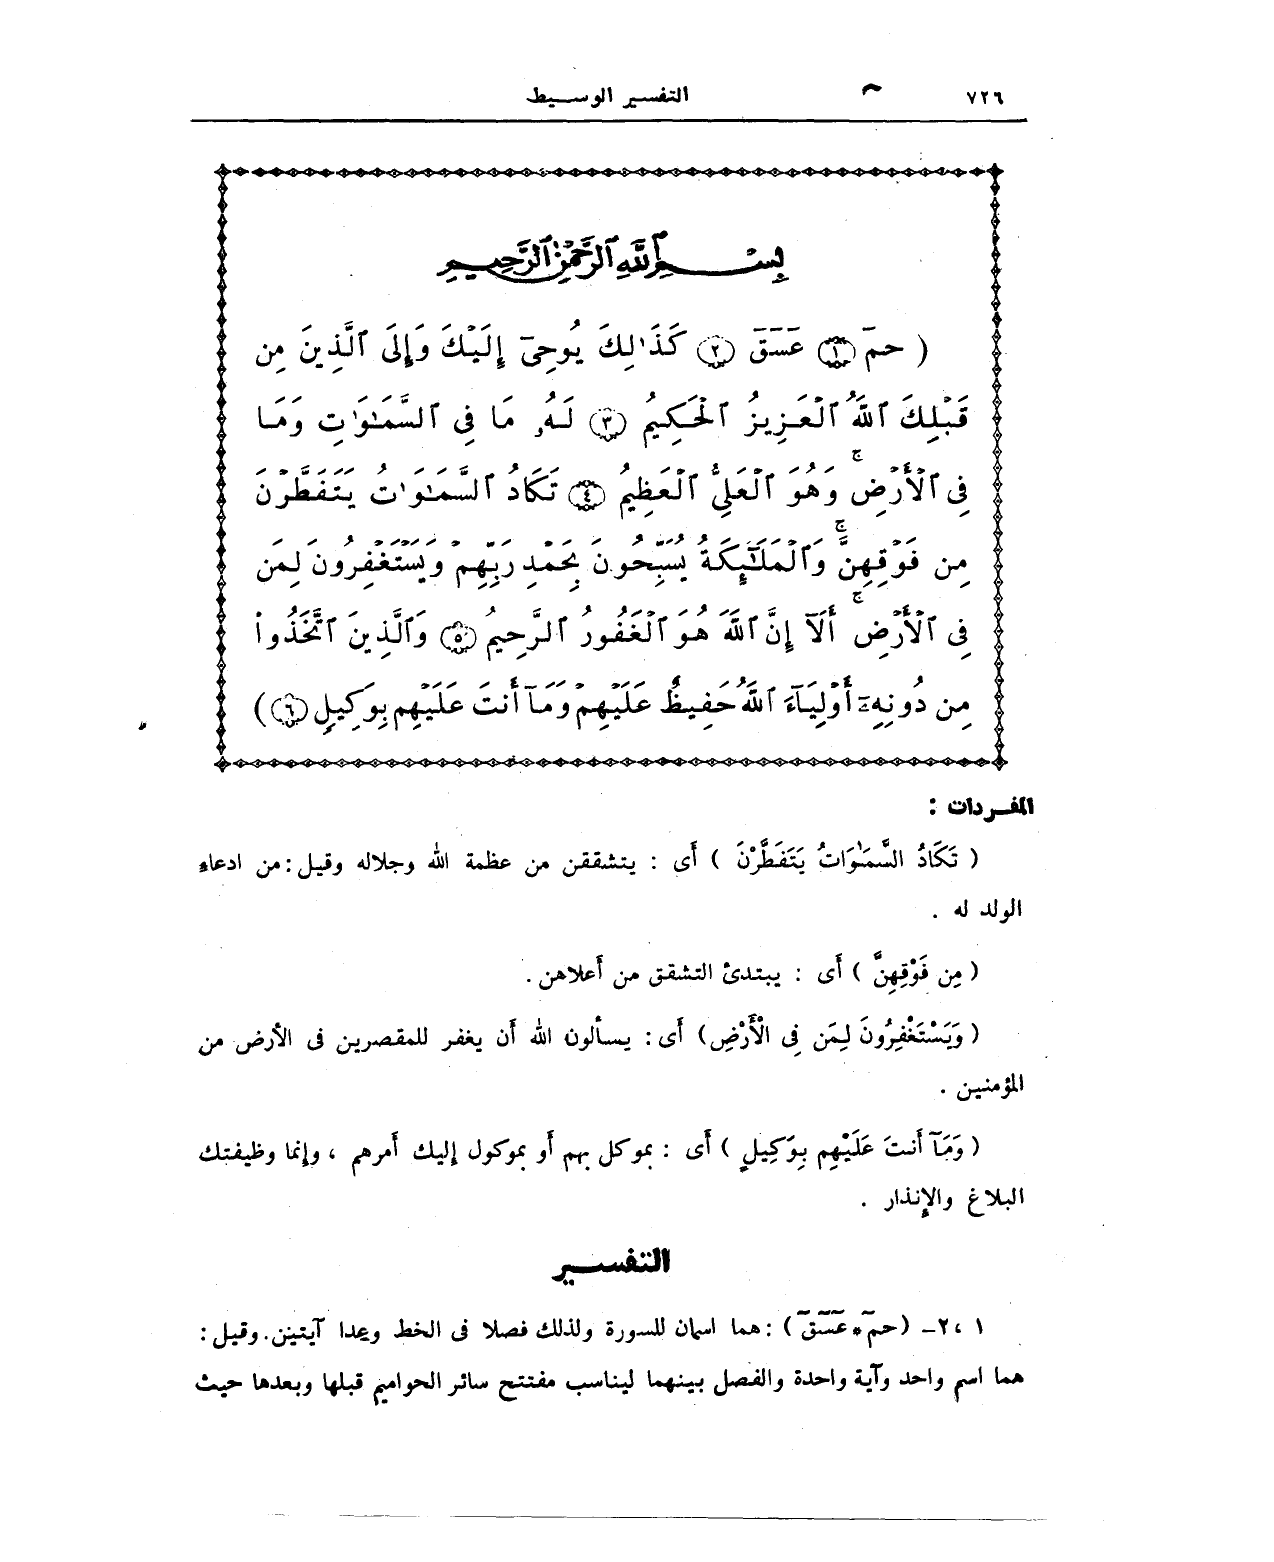 ٧٢٦ التفسير الوسيط
بِسْمِ ٱللَّهِ ٱلرَّحْمَٰنِ ٱلرَّحِيمِ
( حمٓ ١ عٓسٓقٓ ٢ كَذَٰلِكَ يُوحِىٓ إِلَيْكَ وَإِلَى ٱلَّذِينَ مِن
قَبْلِكَ ٱللَّهُ ٱلْعَزِيزُ ٱلْحَكِيمُ ٣ لَهُۥ مَا فِى ٱلسَّمَٰوَٰتِ وَمَا
فِى ٱلْأَرْضِ ۖ وَهُوَ ٱلْعَلِىُّ ٱلْعَظِيمُ ٤ تَكَادُ ٱلسَّمَٰوَٰتُ يَتَفَطَّرْنَ
مِن فَوْقِهِنَّ ۚ وَٱلْمَلَٰٓئِكَةُ يُسَبِّحُونَ بِحَمْدِ رَبِّهِمْ وَيَسْتَغْفِرُونَ لِمَن
فِى ٱلْأَرْضِ ۗ أَلَآ إِنَّ ٱللَّهَ هُوَ ٱلْغَفُورُ ٱلرَّحِيمُ ٥ وَٱلَّذِينَ ٱتَّخَذُوا۟
مِن دُونِهِۦٓ أَوْلِيَآءَ ٱللَّهُ حَفِيظٌ عَلَيْهِمْ وَمَآ أَنتَ عَلَيْهِم بِوَكِيلٍ ٦ )
المفـردات :
( تَكَادُ السَّمَٰوَاتُ يَتَفَطَّرْنَ ) أى : يتشققن من عظمة الله وجلاله وقيل : من ادعاء
الولد له .
( مِن فَوْقِهِنَّ ) أى : يبتدئ التشقق من أعلاهن .
( وَيَسْتَغْفِرُونَ لِمَن فِى الْأَرْضِ ) أى : يسألون الله أن يغفر للمقصرين فى الأرض من
المؤمنين .
( وَمَآ أَنتَ عَلَيْهِم بِوَكِيلٍ ) أى : بموكل بهم أو بموكول إليك أمرهم ، وإنما وظيفتك
البلاغ والإنذار .
التفسـير
١ ، ٢ـ ( حمٓ * عٓسٓقٓ ) : هما اسمان للسورة ولذلك فصلا فى الخط وعدا آيتين . وقيل :
هما اسم واحد وآية واحدة والفصل بينهما ليناسب مفتتح سائر الحواميم قبلها وبعدها حيث